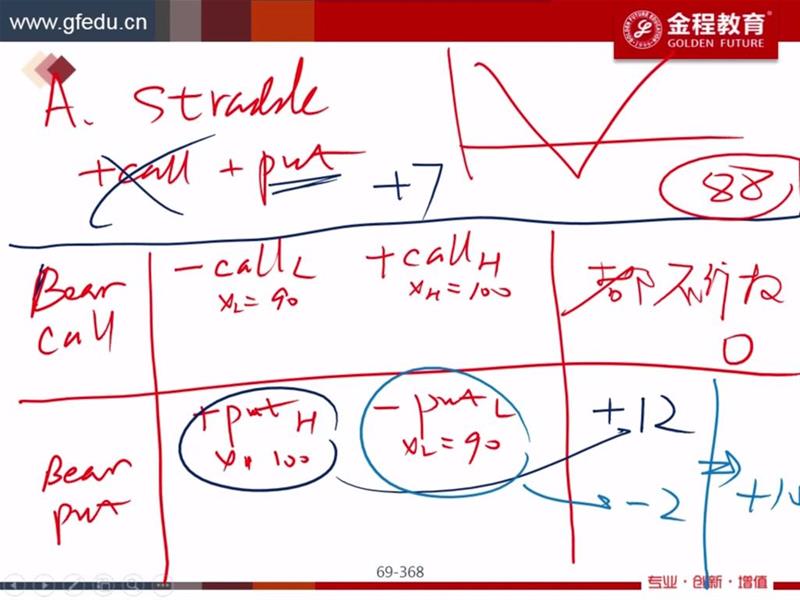 www.gfedu.cn
金程教育
GOLDEN FUTURE
A. Straddle
+call + put +7
88
Bear call
-call L
X_L = 90
+call H
X_H = 100
都不行权
0
Bear put
+put H
X_H 100
-put L
X_L = 90
+12
-2
+10
69-368
专业·创新·增值